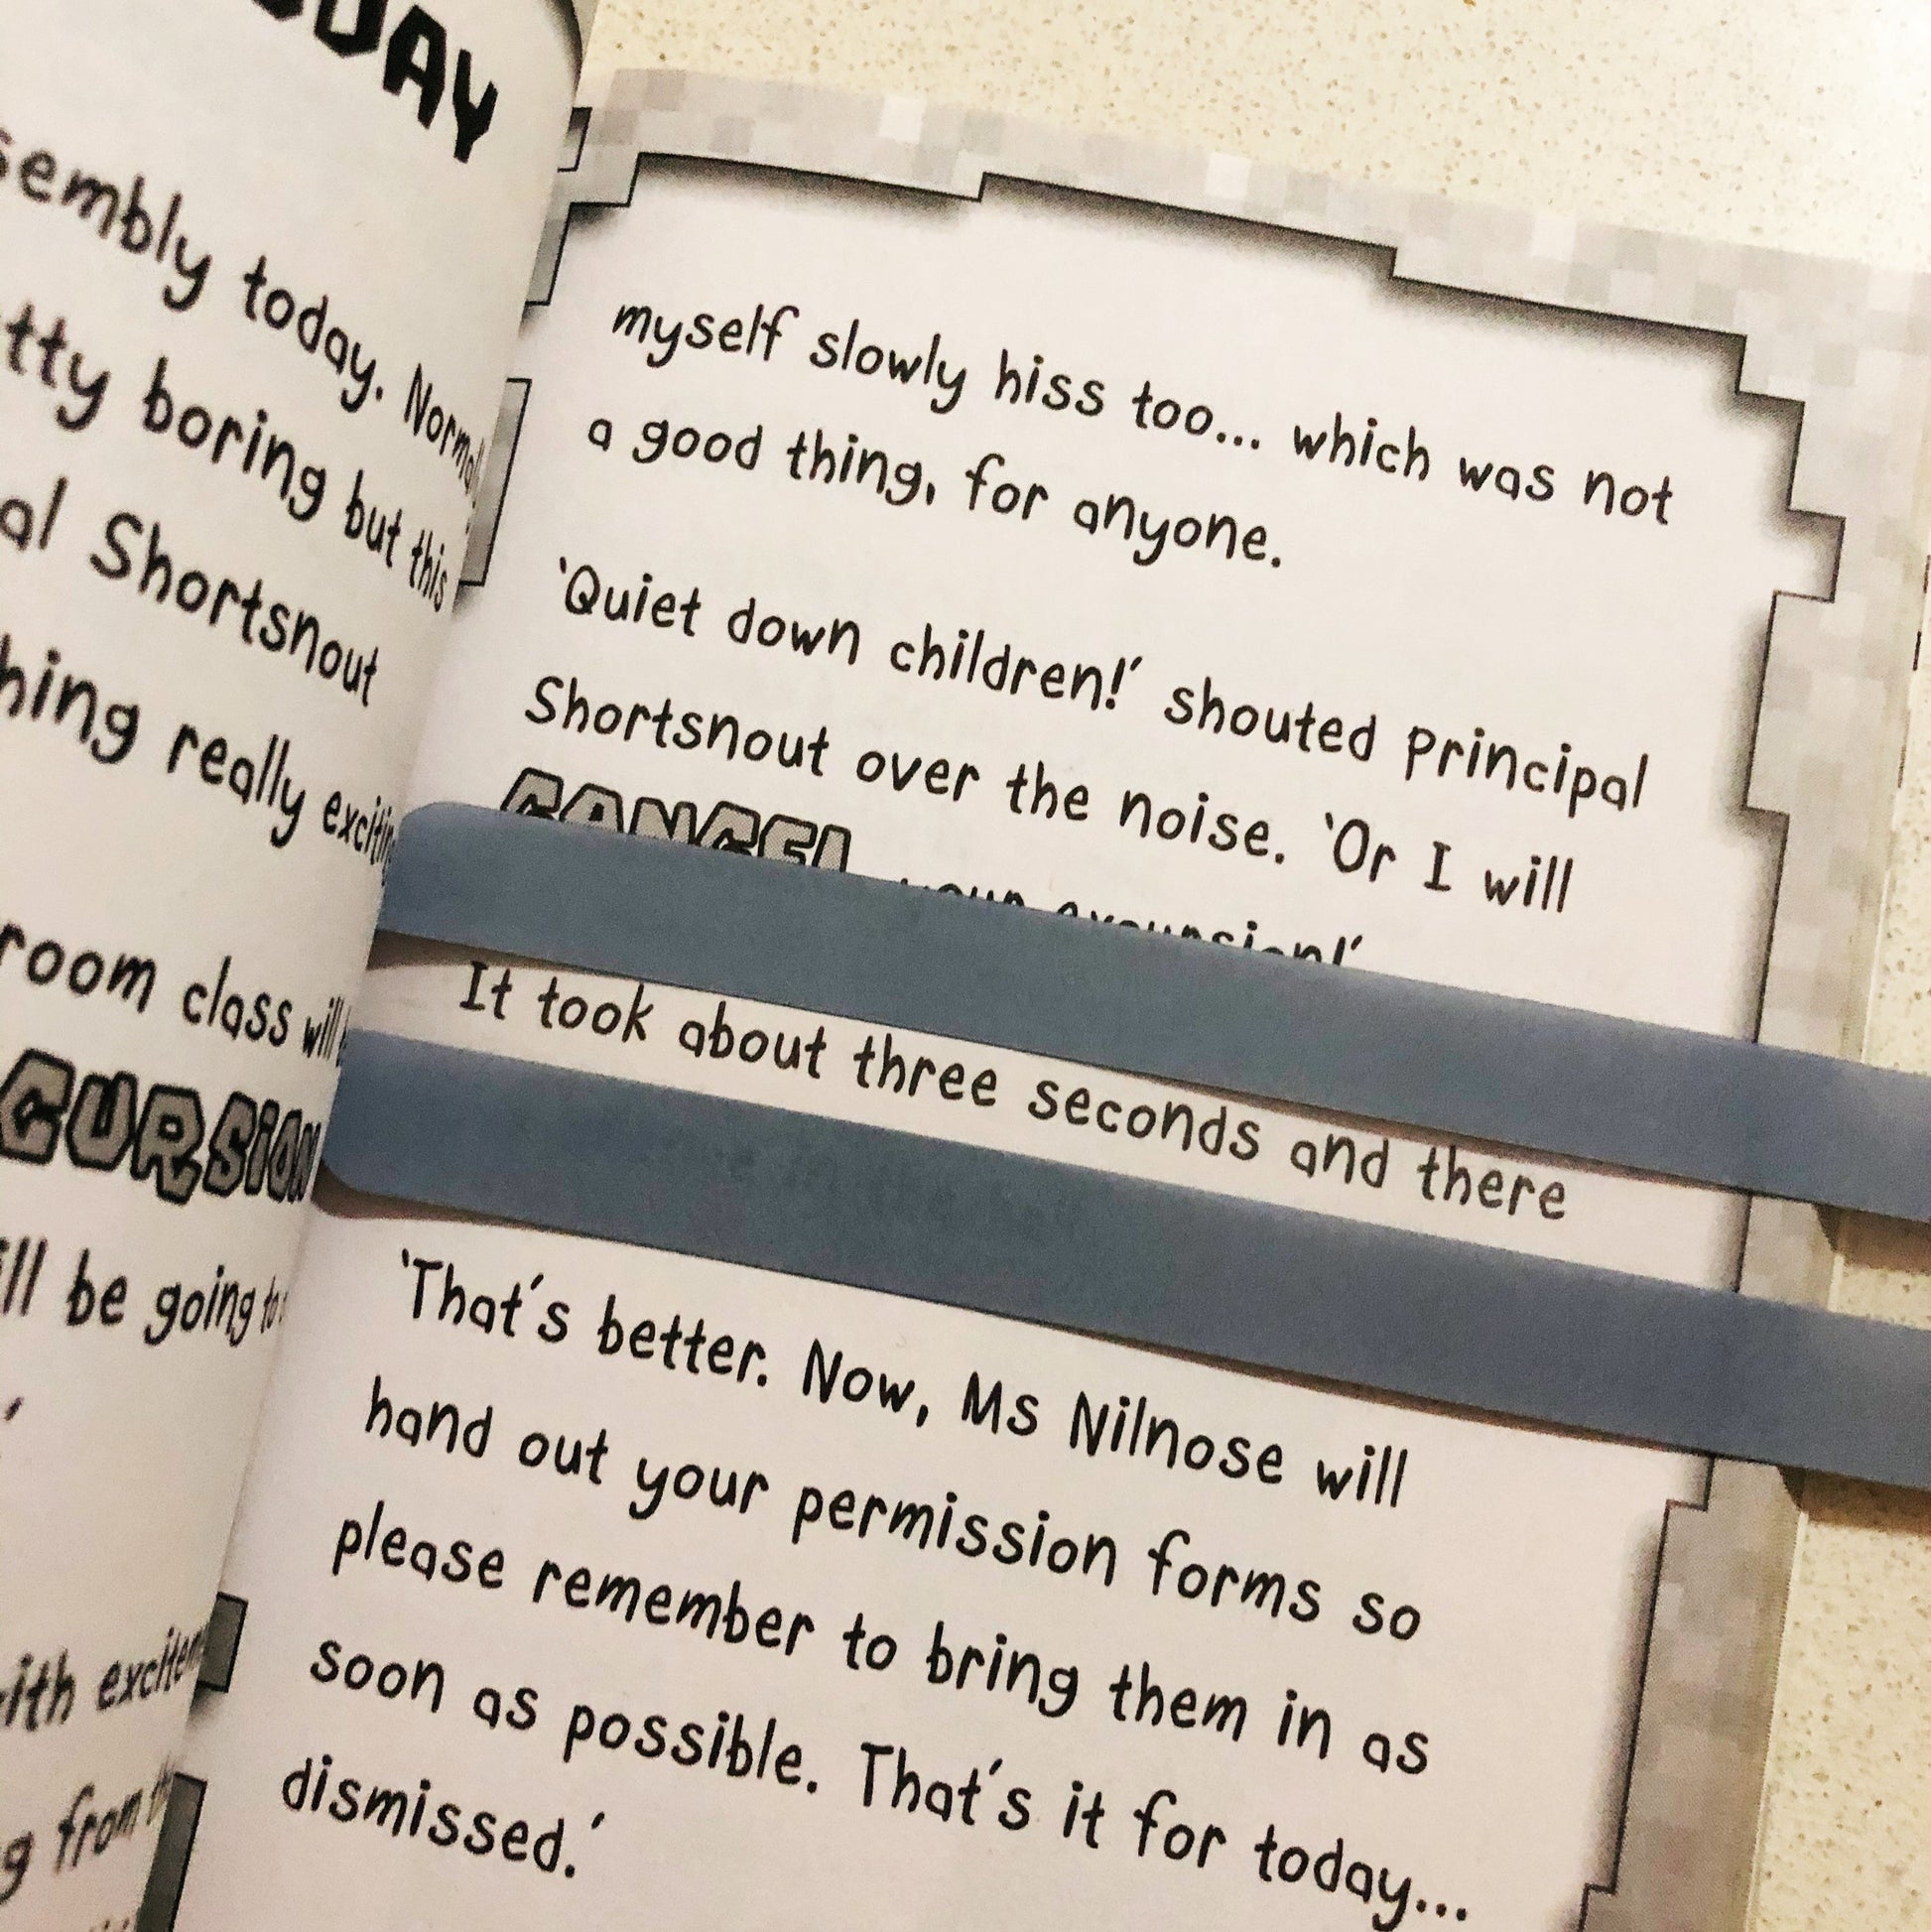 DAY
sembly today. Normal
tty boring but this
al Shortsnout
hing really
room class will
CURSION
ill be going to
ith
g from
myself slowly hiss too... which was not
a good thing, for anyone.
'Quiet down children!' shouted Principal
Shortsnout over the noise. 'Or I will
CANCEL your excursion!'
It took about three seconds and there
'That's better. Now, Ms Nilnose will
hand out your permission forms so
please remember to bring them in as
soon as possible. That's it for today...
dismissed.'